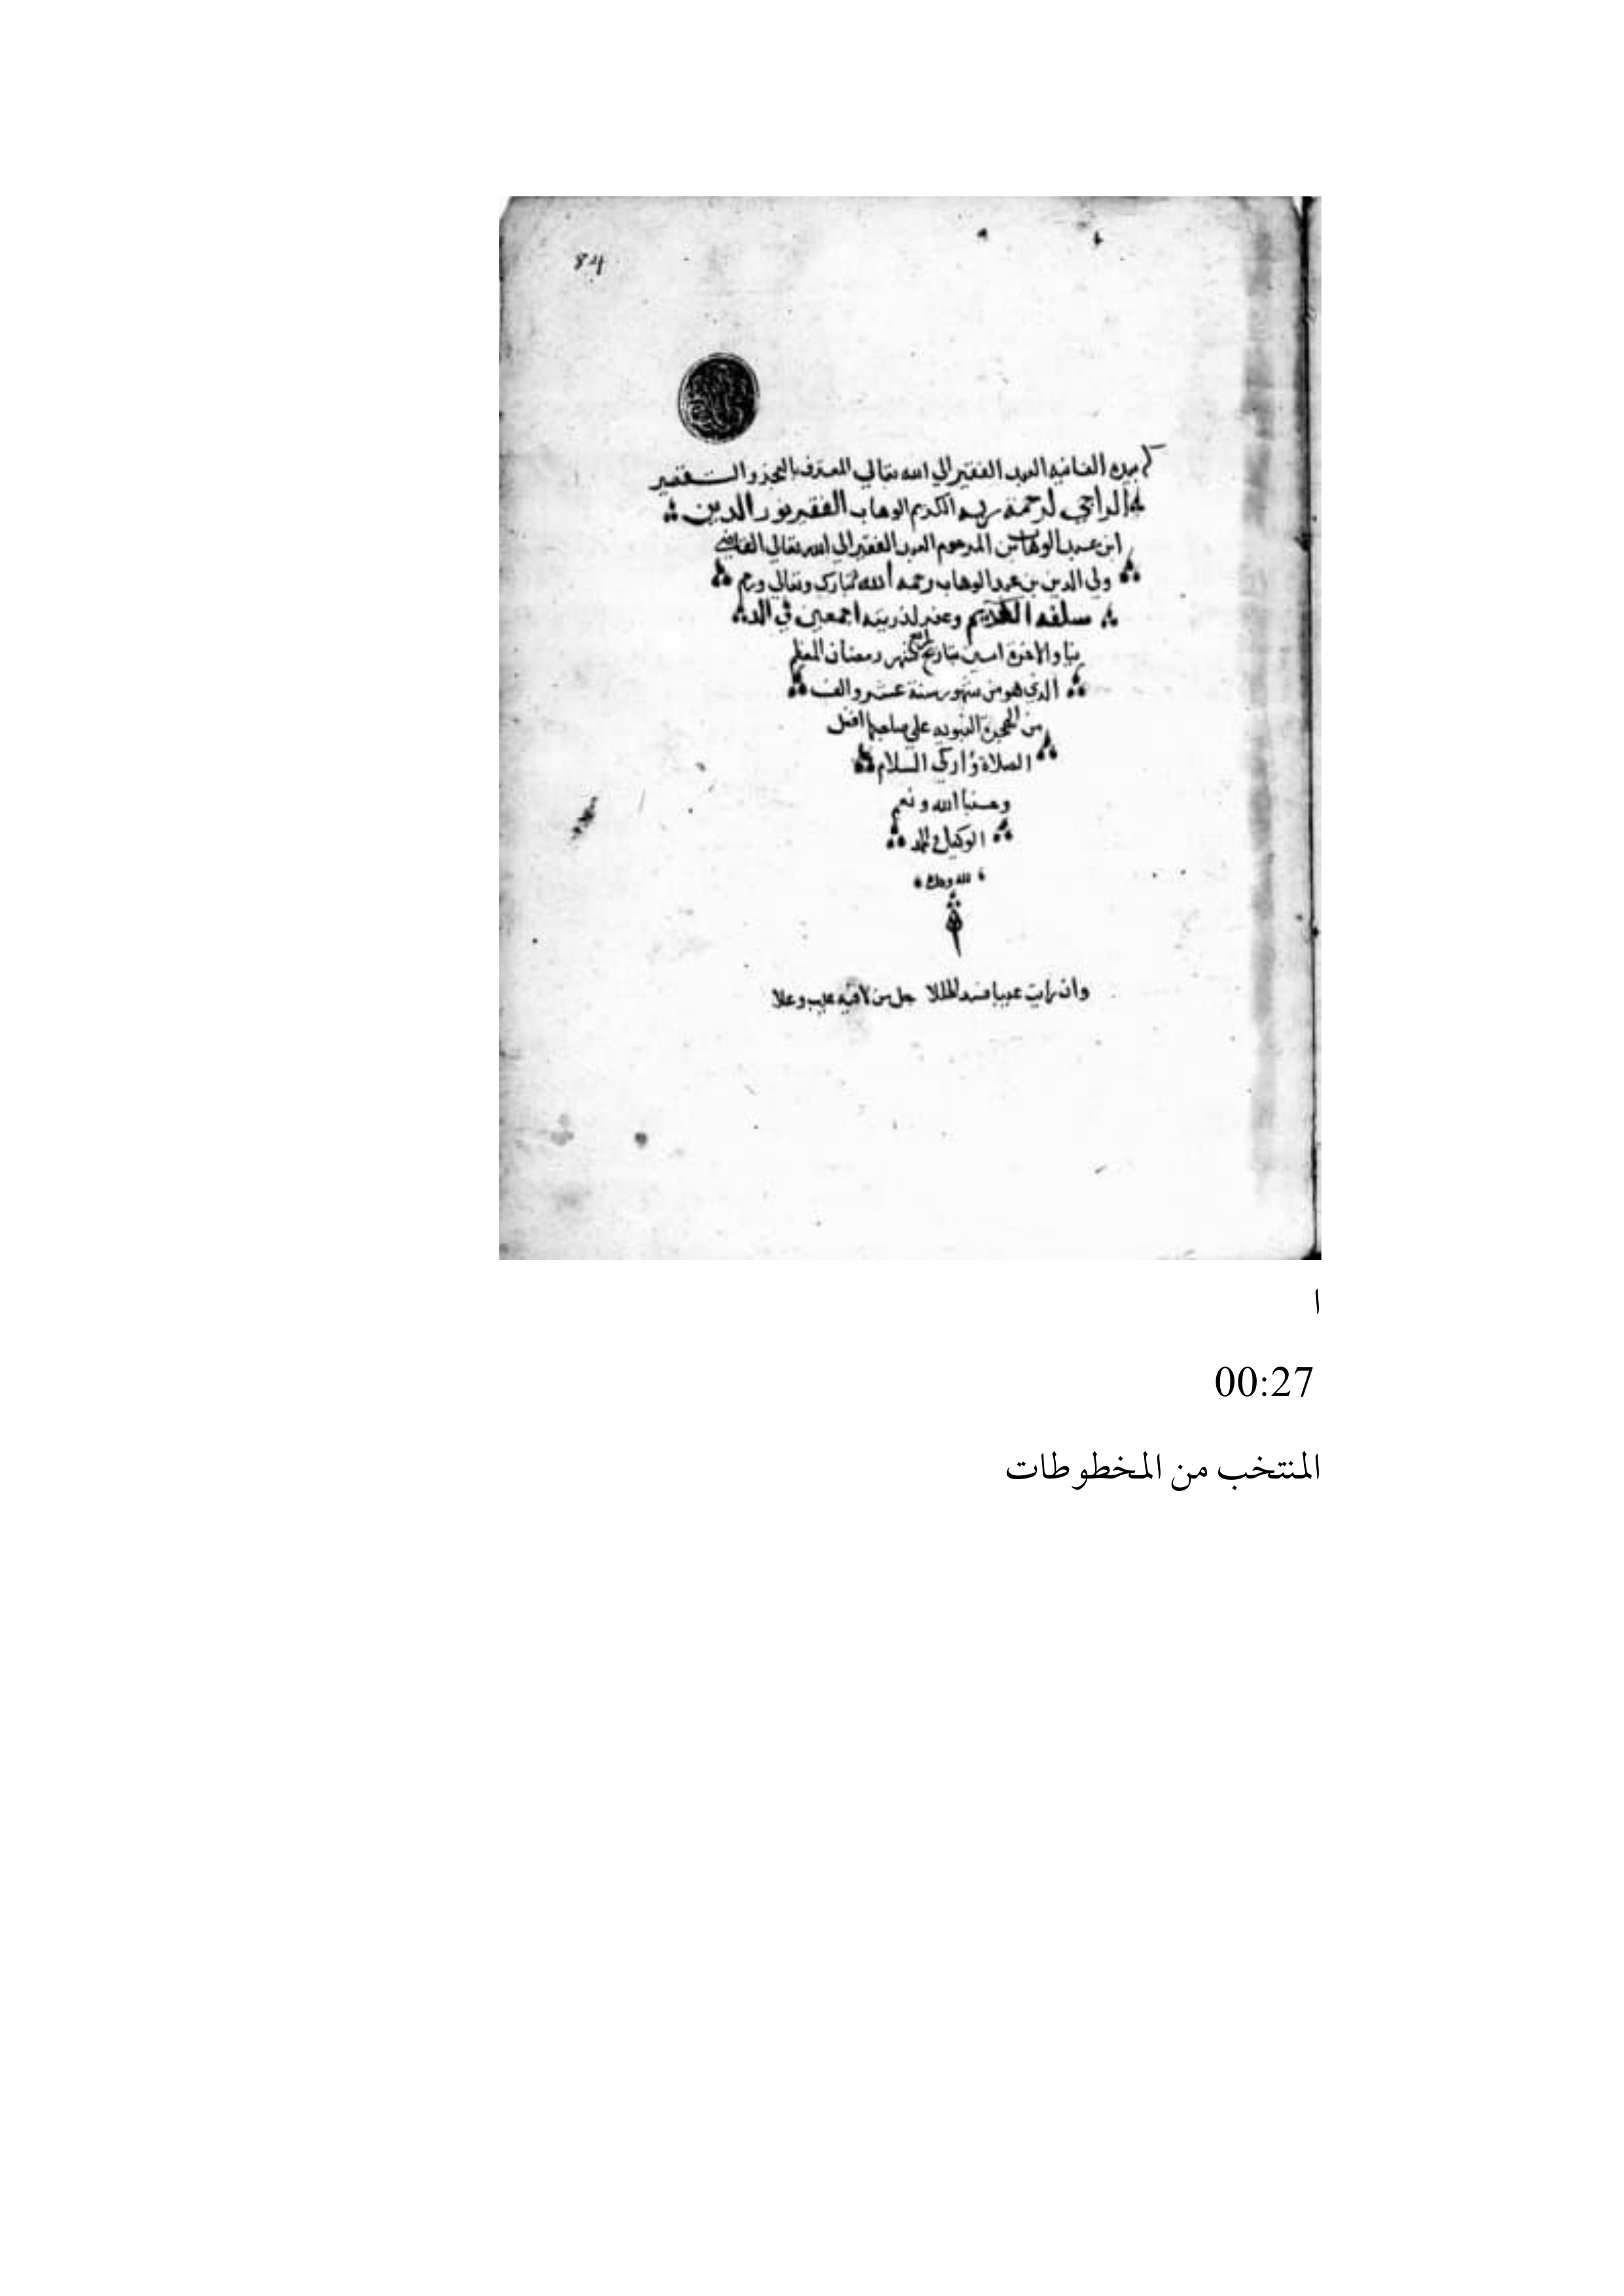 84
بيده الفانيه العبد الفقير الي الله تعالي المعترف بالعجز والتقصير
الراجي لرحمة ربه الكريم الوهاب الفقير نور الدين
ابن عبد الوهاب بن المرحوم العبد الفقير الي الله تعالي القاضي
ولي الدين بن عبد الوهاب رحمه الله تبارك وتعالي ورحم
سلفه الكريم وغفر لذريته اجمعين في الد
نيا والاخرة امين بتاريخ شهر رمضان المعظم
الذي هو من شهور سنة عشر والف
من الهجرة النبويه علي صاحبها افضل
الصلاة وازكي السلام
وحسبنا الله ونعم
الوكيل والحمد
لله وحده
وان رايت عيبا فسد الخللا جل من لا فيه عيب وعلا
ا
00:27
المنتخب من المخطوطات